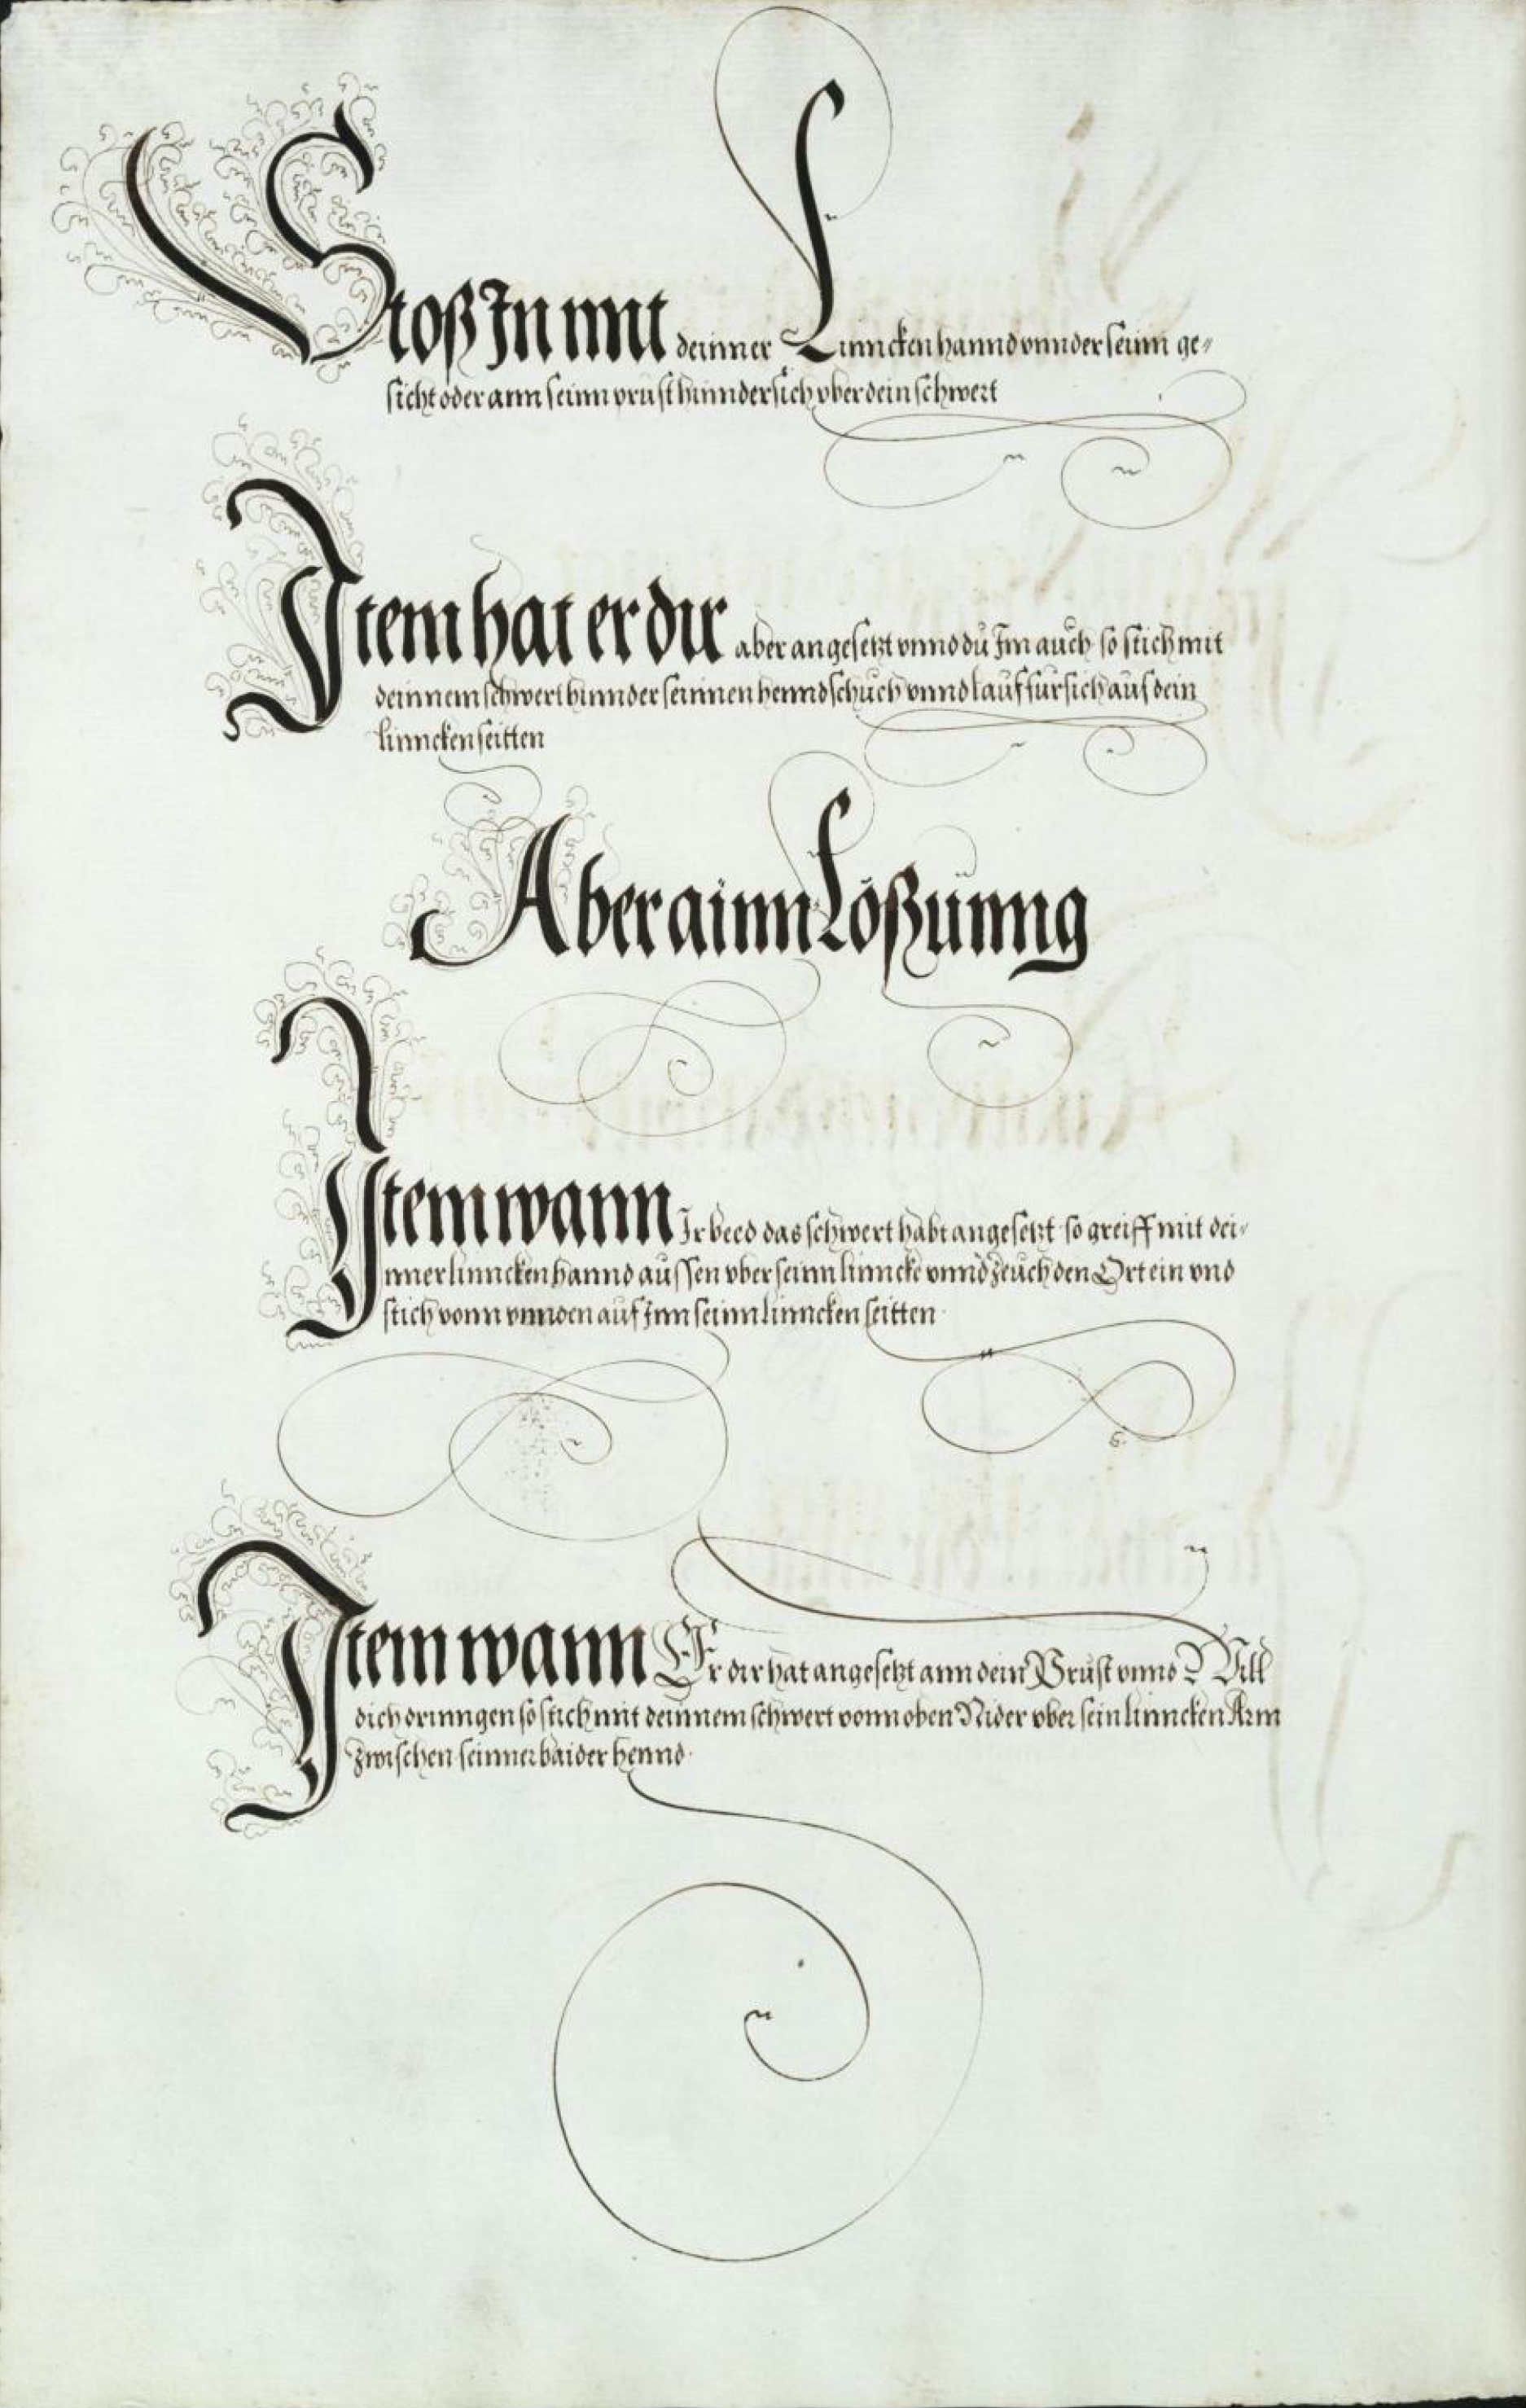 Stoß In mit deinner Linncken hannd vnnder seinn ge„
sicht oder ann seinn prust hinndersich vber dein schwert
Item hat er dir aber angesetzt vnnd dü Im aüch so stich mit
deinnem schwert hinnder seinnen henndschüch vnnd lauf fur sich auf dein
linncken seitten
Aber ainn Lößünng
Item wann Ir beed das schwert habt angesetzt so greiff mit dei„
nner linncken hannd aussen vber seinn linncke vnnd zeüch den Ort ein vnd
stich vonn vnnden auf Inn seinn linncken seitten.
Item wann Er dir hat angesetzt ann dein Prüst vnnd Will
dich drinngen so stich mit deinnem schwert vonn oben Nider vber sein linncken Arm
zwischen seinner baider hennd.